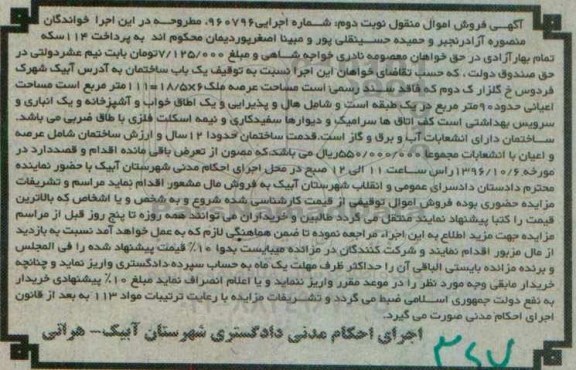 آگهی فروش اموال منقول نوبت دوم: شماره اجرایی۹۶۰۷۹۶ مطروحه در این اجرا خواندگان
منصوره آزادرنجبر و حمیده حسینقلی پور و مبینا اصغرپوردیمان محکوم اند به پرداخت ۱۱۴سکه
تمام بهارآزادی در حق خواهان معصومه نادری خواجه شاهی و مبلغ ۷/۱۲۵/۰۰۰تومان بابت نیم عشردولتی در
حق صندوق دولت ، که حسب تقاضای خواهان این اجرا نسبت به توقیف یک باب ساختمان به آدرس آبیک شهرک
فردوس خ گلزار ک دوم که فاقد سند رسمی است مساحت عرصه ملک۶×۱۸/۵=۱۱۱متر مربع است مساحت
اعیانی حدود۹۰متر مربع در یک طبقه است و شامل هال و پذیرایی و یک اطاق خواب و آشپزخانه و یک انباری و
سرویس بهداشتی است کف اتاق ها سرامیک و دیوارها سفیدکاری و نیمه اسکلت فلزی با طاق ضربی می باشد.
ساختمان دارای انشعابات آب و برق و گاز است.قدمت ساختمان حدودا ۱۲سال و ارزش ساختمان شامل عرصه
و اعیان با انشعابات مجموعا ۵۵۰/۰۰۰/۰۰۰ریال می باشد.که مصون از تعرض باقی مانده اقدام و قصددارد در
مورخه ۱۳۹۶/۱۰/۶راس ساعت ۱۱ الی ۱۲ صبح در محل اجرای احکام مدنی شهرستان آبیک با حضور نماینده
محترم دادستان دادسرای عمومی و انقلاب شهرستان آبیک به فروش مال مشعور اقدام نماید مراسم و تشریفات
مزایده حضوری بوده فروش اموال توقیفی از قیمت کارشناسی شده شروع و به شخص و یا اشخاص که بالاترین
قیمت را کتبا پیشنهاد نمایند منتقل می گردد طالبین و خریداران می توانند همه روزه تا پنج روز قبل از مراسم
مزایده جهت مزید اطلاع به این اجراء مراجعه نموده تا ضمن هماهنگی لازم که به عمل خواهد آمد نسبت به بازدید
از مال مزبور اقدام نمایند و شرکت کنندگان در مزائده میبایست بدوا ۱۰٪ قیمت پیشنهاد شده را فی المجلس
و برنده مزائده بایستی الباقی آن را حداکثر ظرف مهلت یک ماه به حساب سپرده دادگستری واریز نماید و چنانچه
خریدار مابقی وجه مورد نظر را در موعد مقرر واریز ننماید و یا اعلام انصراف نماید مبلغ ۱۰٪ پیشنهادی خریدار
به نفع دولت جمهوری اسلامی ضبط می گردد و تشریفات مزایده با رعایت ترتیبات مواد ۱۱۳ به بعد از قانون
اجرای احکام مدنی صورت می گیرد.
اجرای احکام مدنی دادگستری شهرستان آبیک- هراتی